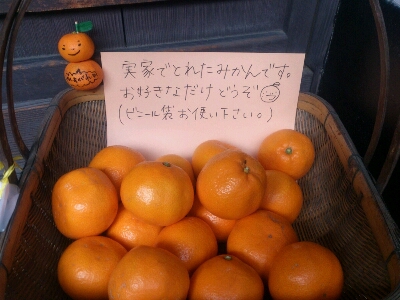 実家でとれたみかんです。
お好きなだけどうぞ
(ビニール袋お使い下さい。)